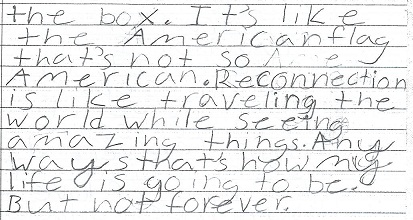 the box. It's like
the American flag
that's not so
American. Reconnection
is like traveling the
world while seeing
amazing things. Any
ways that's how my
life is going to be.
But not forever.